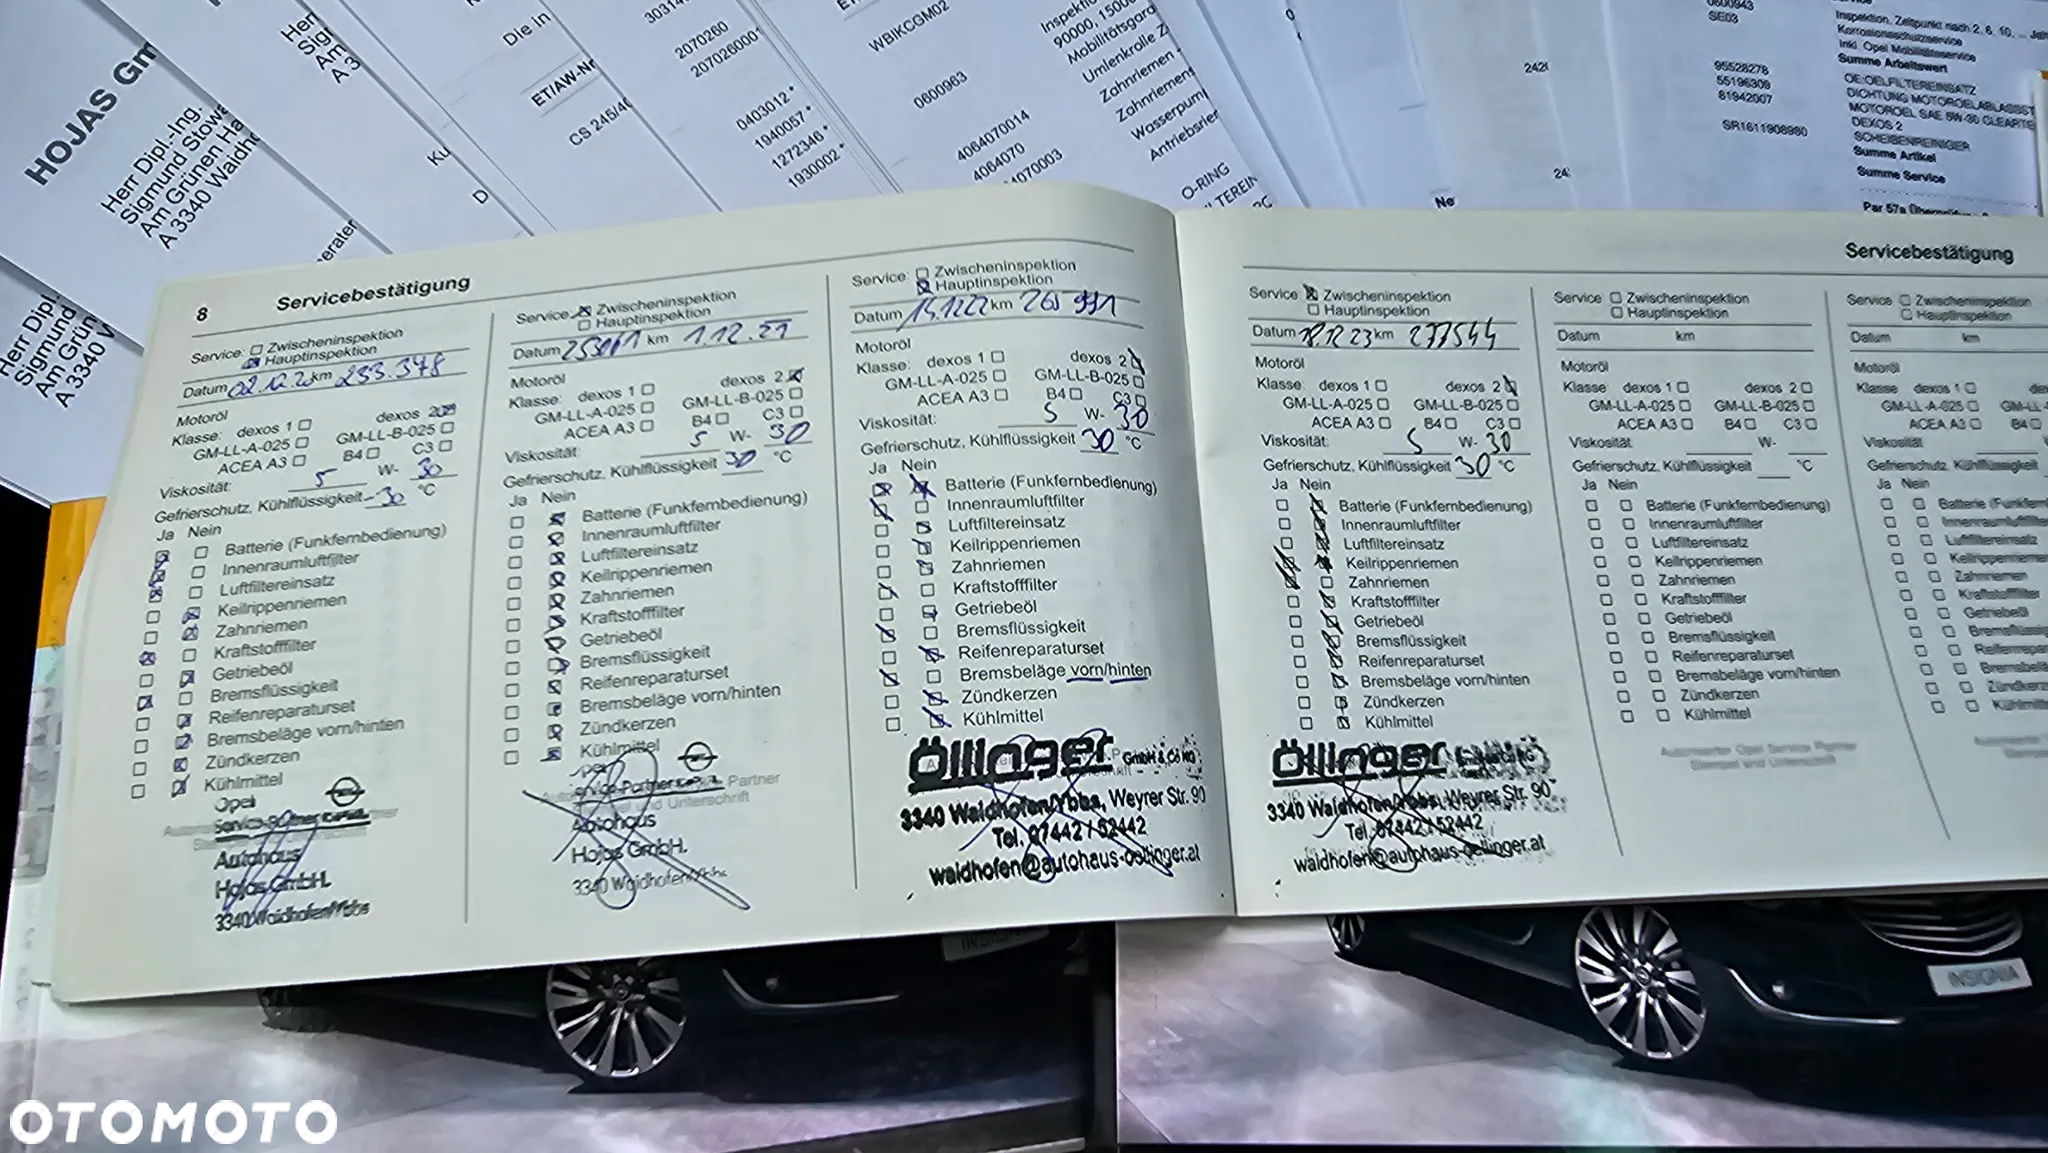 HOJAS Gm
Herr Dipl.-Ing.
Sigmund Stowa
Am Grünen Ha
A 3340 Waidho
Herr Dipl.
Sigmund
Am Grün
A 3340 W
Die in
ET/AW-Nr
CS 245/4
2070260
2070260001
0403012 *
1940057 *
1272346 *
1930002 *
WBIKCGM02
0600963
4064070014
4064070
Inspektio
90000, 1500
Mobilitätsgara
Umlenkrolle Z
Zahnriemen
Zahnriemens
Wasserpum
Antriebsrie
O-RING
0600943
SE03
95528278
55196309
81942007
SR1611908980
Inspektion, Zeitpunkt nach 2, 6, 10, ... Jah
Korrosionsschutzservice
Inkl. Opel Mobilitätsservice
Summe Arbeitswert
OE:OELFILTEREINSATZ
DICHTUNG MOTOROELABLASSST
MOTOROEL SAE 5W-30 CLEARTE
DEXOS 2
SCHEIBENREINIGER
Summe Artikel
Summe Service
8 Servicebestätigung
Service: Zwischeninspektion
Hauptinspektion
Datum 02.12.20 km 233.348
Motoröl
Klasse: dexos 1 dexos 2
GM-LL-A-025 GM-LL-B-025
ACEA A3 B4 C3
Viskosität: 5 W- 30
Gefrierschutz, Kühlflüssigkeit -30 °C
Ja Nein
Batterie (Funkfernbedienung)
Innenraumluftfilter
Luftfiltereinsatz
Keilrippenriemen
Zahnriemen
Kraftstofffilter
Getriebeöl
Bremsflüssigkeit
Reifenreparaturset
Bremsbeläge vorn/hinten
Zündkerzen
Kühlmittel
Opel
Service-Partner
Autohaus
Hojas GmbH.
3340 Waidhofen/Ybbs
Service: Zwischeninspektion
Hauptinspektion
Datum km 1.12.21
Motoröl
Klasse: dexos 1 dexos 2
GM-LL-A-025 GM-LL-B-025
ACEA A3 B4 C3
Viskosität: 5 W- 30
Gefrierschutz, Kühlflüssigkeit 30 °C
Ja Nein
Batterie (Funkfernbedienung)
Innenraumluftfilter
Luftfiltereinsatz
Keilrippenriemen
Zahnriemen
Kraftstofffilter
Getriebeöl
Bremsflüssigkeit
Reifenreparaturset
Bremsbeläge vorn/hinten
Zündkerzen
Kühlmittel
Autohaus
Hojas GmbH.
3340 Waidhofen/Ybbs
Service: Zwischeninspektion
Hauptinspektion
Datum 14.12.22 km 265 991
Motoröl
Klasse: dexos 1 dexos 2
GM-LL-A-025 GM-LL-B-025
ACEA A3 B4 C3
Viskosität: 5 W- 30
Gefrierschutz, Kühlflüssigkeit 30 °C
Ja Nein
Batterie (Funkfernbedienung)
Innenraumluftfilter
Luftfiltereinsatz
Keilrippenriemen
Zahnriemen
Kraftstofffilter
Getriebeöl
Bremsflüssigkeit
Reifenreparaturset
Bremsbeläge vorn/hinten
Zündkerzen
Kühlmittel
öllinger GmbH & Co KG
3340 Waidhofen/Ybbs, Weyrer Str. 90
Tel. 07442 / 52442
waidhofen@autohaus-oellinger.at
Servicebestätigung
Service: Zwischeninspektion
Hauptinspektion
Datum 18.12.23 km 277544
Motoröl
Klasse: dexos 1 dexos 2
GM-LL-A-025 GM-LL-B-025
ACEA A3 B4 C3
Viskosität: 5 W- 30
Gefrierschutz, Kühlflüssigkeit 30 °C
Ja Nein
Batterie (Funkfernbedienung)
Innenraumluftfilter
Luftfiltereinsatz
Keilrippenriemen
Zahnriemen
Kraftstofffilter
Getriebeöl
Bremsflüssigkeit
Reifenreparaturset
Bremsbeläge vorn/hinten
Zündkerzen
Kühlmittel
öllinger
3340 Waidhofen/Ybbs, Weyrer Str. 90
Tel. 07442 / 52442
waidhofen@autohaus-oellinger.at
Service: Zwischeninspektion
Hauptinspektion
Datum km
Motoröl
Klasse dexos 1 dexos 2
GM-LL-A-025 GM-LL-B-025
ACEA A3 B4 C3
Viskosität: W-
Gefrierschutz, Kühlflüssigkeit °C
Ja Nein
Batterie (Funkfernbedienung)
Innenraumluftfilter
Luftfiltereinsatz
Keilrippenriemen
Zahnriemen
Kraftstofffilter
Getriebeöl
Bremsflüssigkeit
Reifenreparaturset
Bremsbeläge vorn/hinten
Zündkerzen
Kühlmittel
Autorisierter Opel Service Partner
Stempel und Unterschrift
Service Zwischeninspektion
Hauptinspektion
Datum km
Motoröl
Klasse dexos 1
GM-LL-A-025
ACEA A3
Viskosität:
Gefrierschutz, Kühlflüssigkeit
Ja Nein
INSIGNIA
OTOMOTO